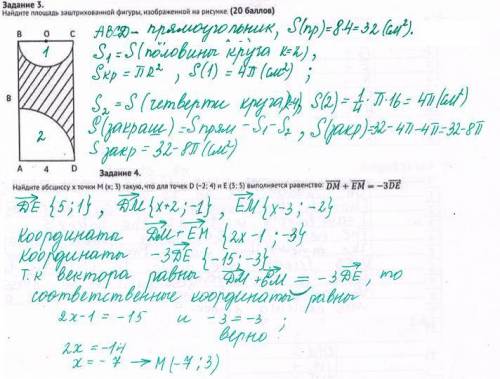 Задание 3.
Найдите площадь заштрихованной фигуры, изображенной на рисунке. (20 баллов)
B O C
1
8
2
A 4 D
ABCD - прямоугольник, S(пр) = 8·4 = 32 (см²).
S₁ = S (половины круга r=2),
Sкр = πR², S(1) = 4π (см²) ;
S₂ = S (четверти круга r=4), S(2) = 1/4 · π · 16 = 4π (см²)
S (закраш) = S прям - S₁ - S₂, S(закр) = 32 - 4π - 4π = 32 - 8π
S закр = 32 - 8π (см²)
Задание 4.
Найдите абсциссу x точки M (x; 3) такую, что для точек D (−2; 4) и E (3; 5) выполняется равенство: DM + EM = −3DE
DE {5; 1}, DM {x+2; -1}, EM {x-3; -2}
Координаты DM + EM {2x-1; -3}
Координаты -3DE {-15; -3}
Т.к вектора равны DM + EM = -3DE, то
соответственные координаты равны
2x-1 = -15 и -3 = -3 ;
верно
2x = -14
x = -7 → M (-7; 3)